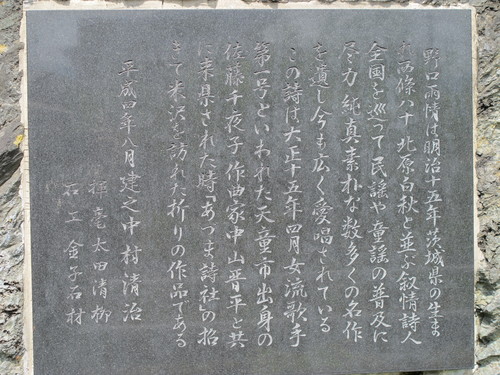 野口雨情は明治十五年茨城県の生ま
れ西條八十 北原白秋と並ぶ叙情詩人
全国を巡って民謡や童謡の普及に
尽力 純真素朴な数多くの名作
を遺し今も広く愛唱されている
この詩は大正十五年四月女流歌手
第一号といわれた天童市出身の
佐藤千夜子 作曲家中山晋平と共
に来県された時「あづま詩社」の招
きで米沢を訪れた折りの作品である
平成四年八月建之中村清治
揮毫太田清柳
石工 金子石材